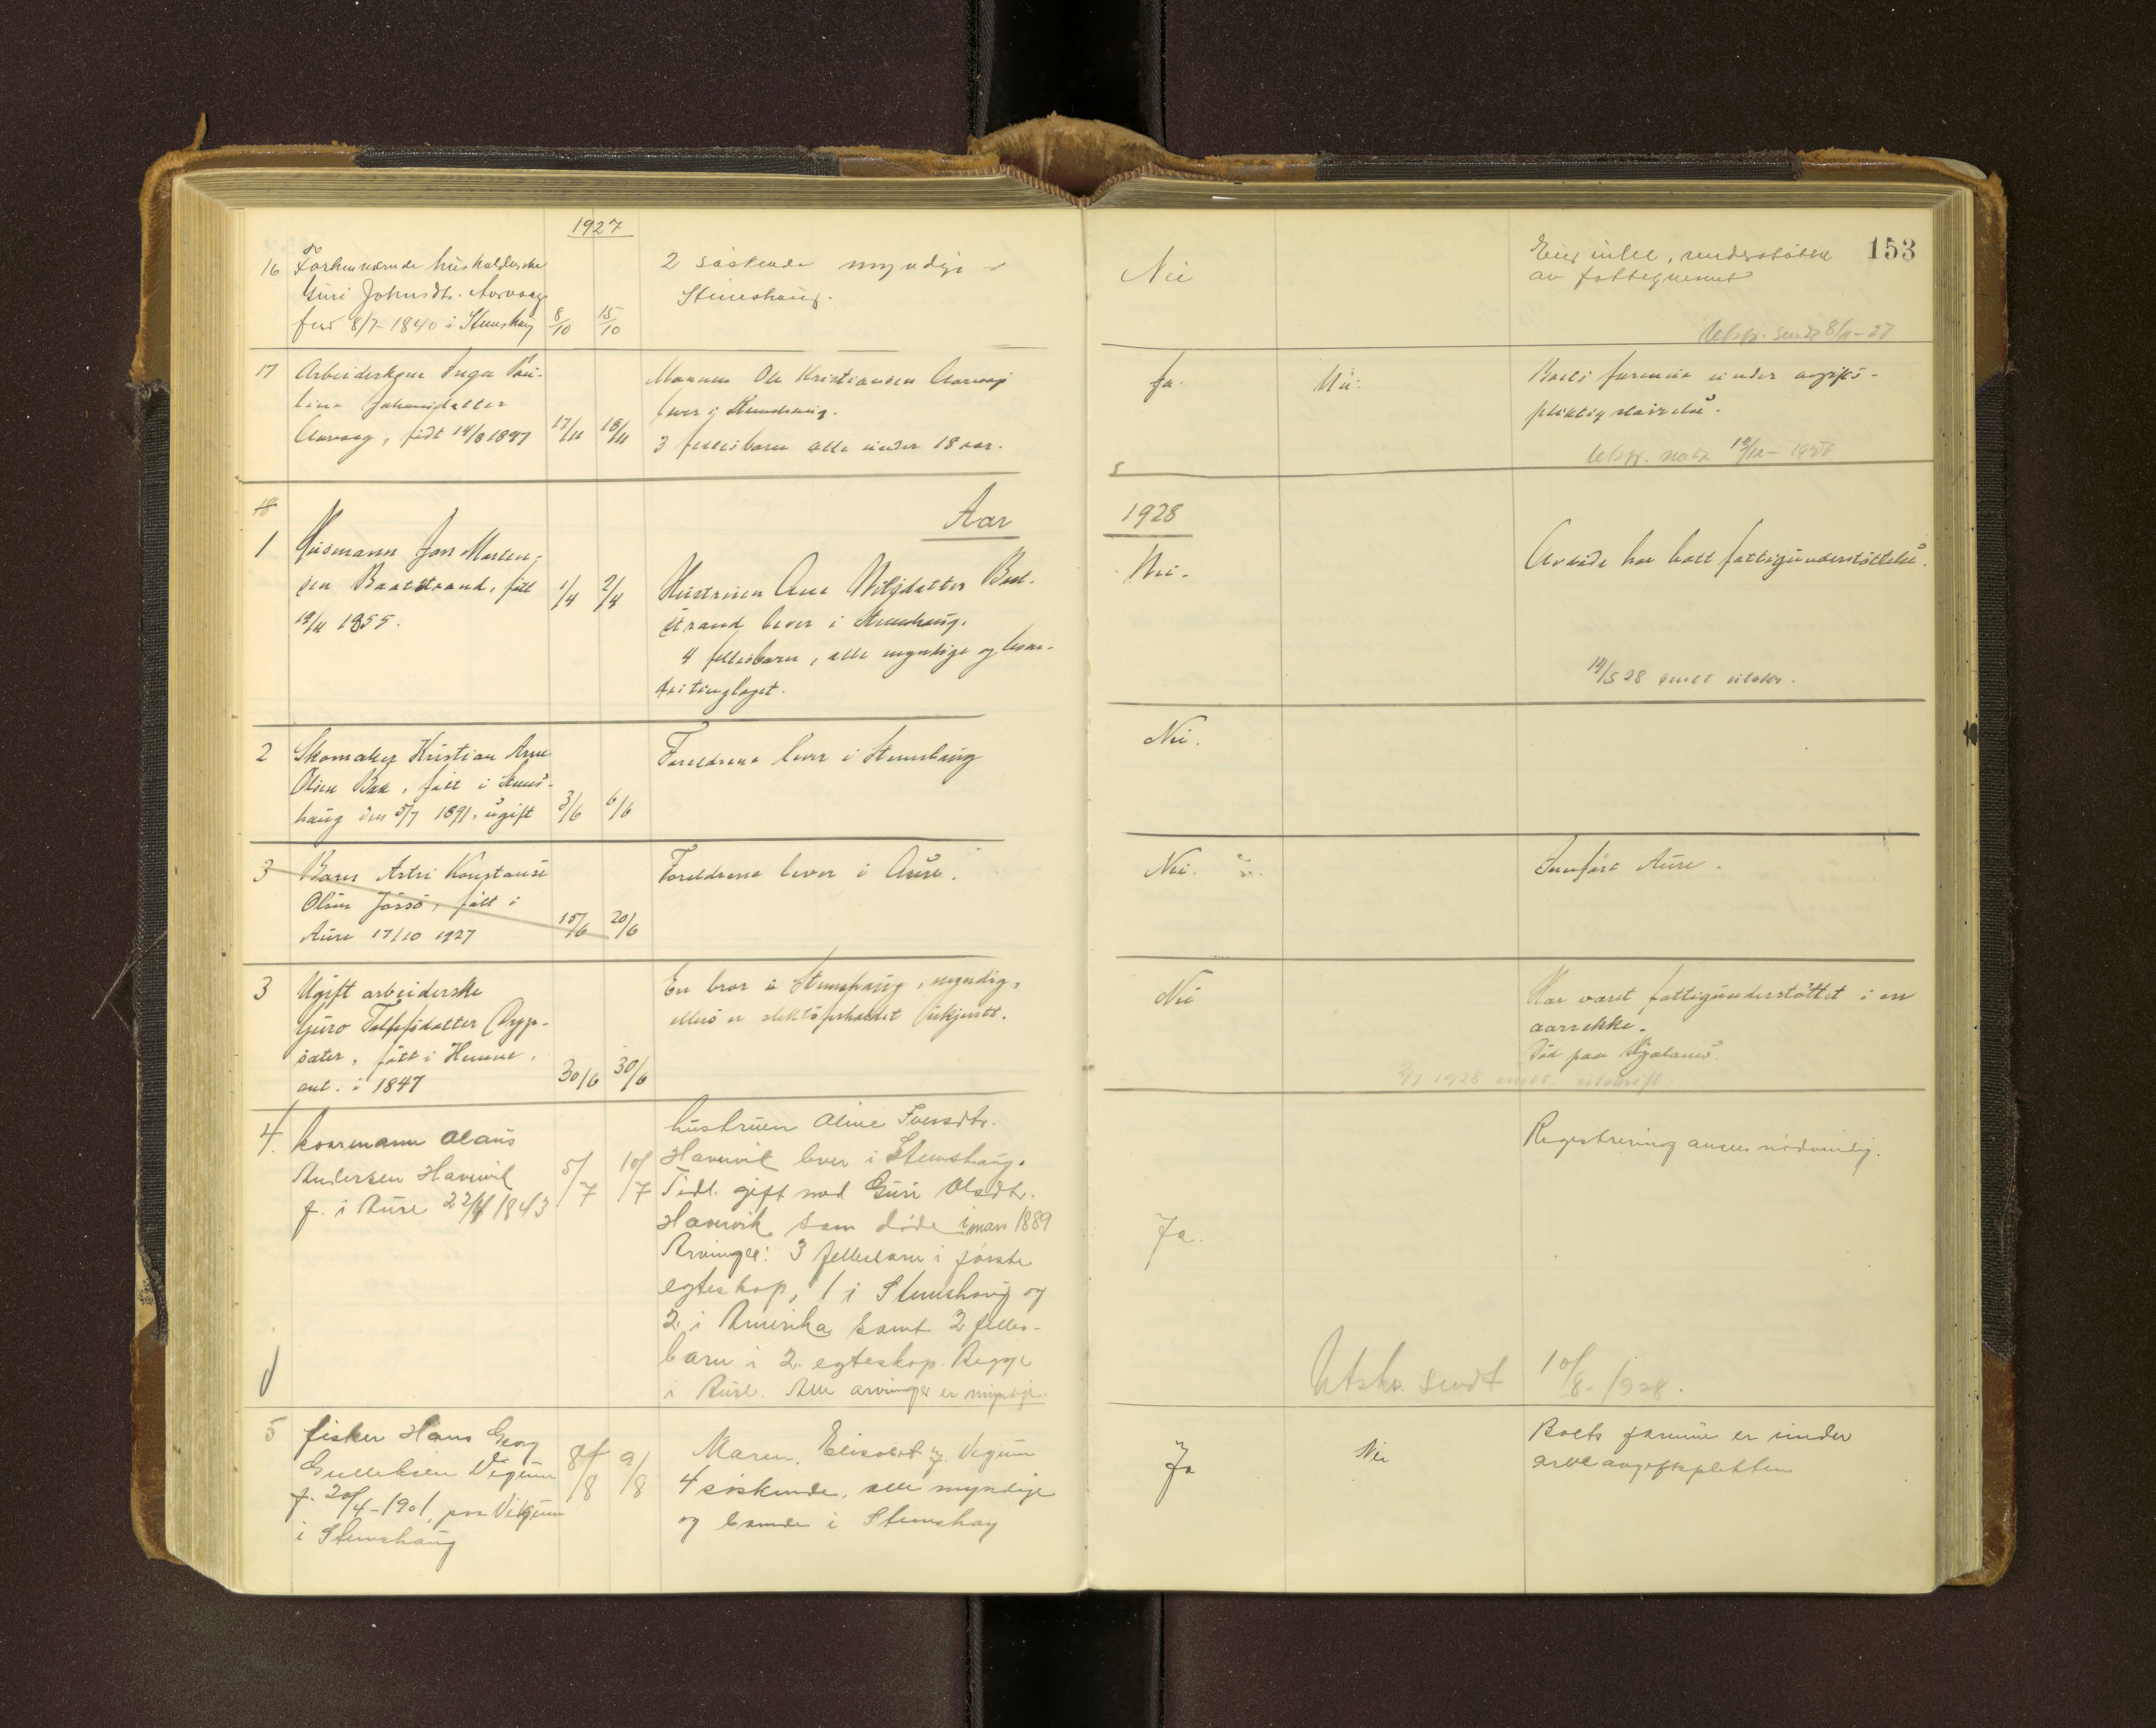 1927
153
16 Forhenværende husholderske
Guri Johnsdtr. Aarvaag
født 8/7 1840 i Stemshaug 8/10 15/10
2 søskende myndige
Stemshaug.
Nei
Eier intet, understøttet
av fattigvesenet
Utskr. sendt 8/11-27
17 Arbeiderkone Inga Pau-
line Johansdatter
Aarvaag, født 14/8 1897 17/11 18/11
Mannen Ole Kristiansen Aarvaag
lever i Stemshaug.
3 fellesbarn alle under 18 aar.
Ja.
Nei.
Boets formue under avgifts-
pliktig størrelse.
Utskr. sendt 12/12-1927
18
Aar 1928
1 Husmann Jon Morten-
sen Baatstrand, født
12/11 1855. 1/4 2/4
Hustruen Ane Nilsdatter Baat-
strand lever i Stemshaug.
4 fellesbarn, alle myndige og bosat-
te i tinglaget.
Nei.
Avdøde har hatt fattigunderstøttelse.
14/5 28 sendt utskr.
2 Skomaker Kristian Arne
Olsen Bak, født i Stems-
haug den 5/7 1891, ugift 3/6 6/6
Foreldrene lever i Stemshaug
Nei.
3 Barn Astri Konstanse
Olsen Jøssø, født i
Aure 17/10 1927 15/6 20/6
Foreldrene lever i Aure.
Nei.
Innført Aure.
3 Ugift arbeiderske
Guro Tollefsdatter Dryp-
sæter, født i Hemne,
ant. i 1847 30/6 30/6
En bror i Stemshaug, myndig,
ellers er slektsforholdet ukjent.
Nei
Har været fattigunderstøttet i en
aarrekke.
Død paa
1928 sendt utskrift.
4. Kaarmann Olaus
Andersen Havnvik
f. i Aure 22/4 1843 5/7 10/7
hustruen Oline Iversdtr.
Havnvik lever i Stemshaug.
Tidl. gift med Guri Olsdtr.
Havnvik som døde i mars 1889
Arvinger: 3 fellesbarn i første
egteskap, 1 i Stemshaug og
2 i Amerika samt 2 felles-
barn i 2. egteskap. Begge
i Aure. Alle arvinger er myndige.
Ja.
Registrering ansees nødvendig.
Utskr. sendt 10/8. 1928.
5 fisker Hans Georg
Gulleksen Vegum
f. 20/4-1901, paa Vegum
i Stemshaug 8/8 9/8
Maren, Elisabet Vegum
4 søskende, alle myndige
og boende i Stemshaug
Ja
Nei
Boets formue er under
arveavgiftsplikten